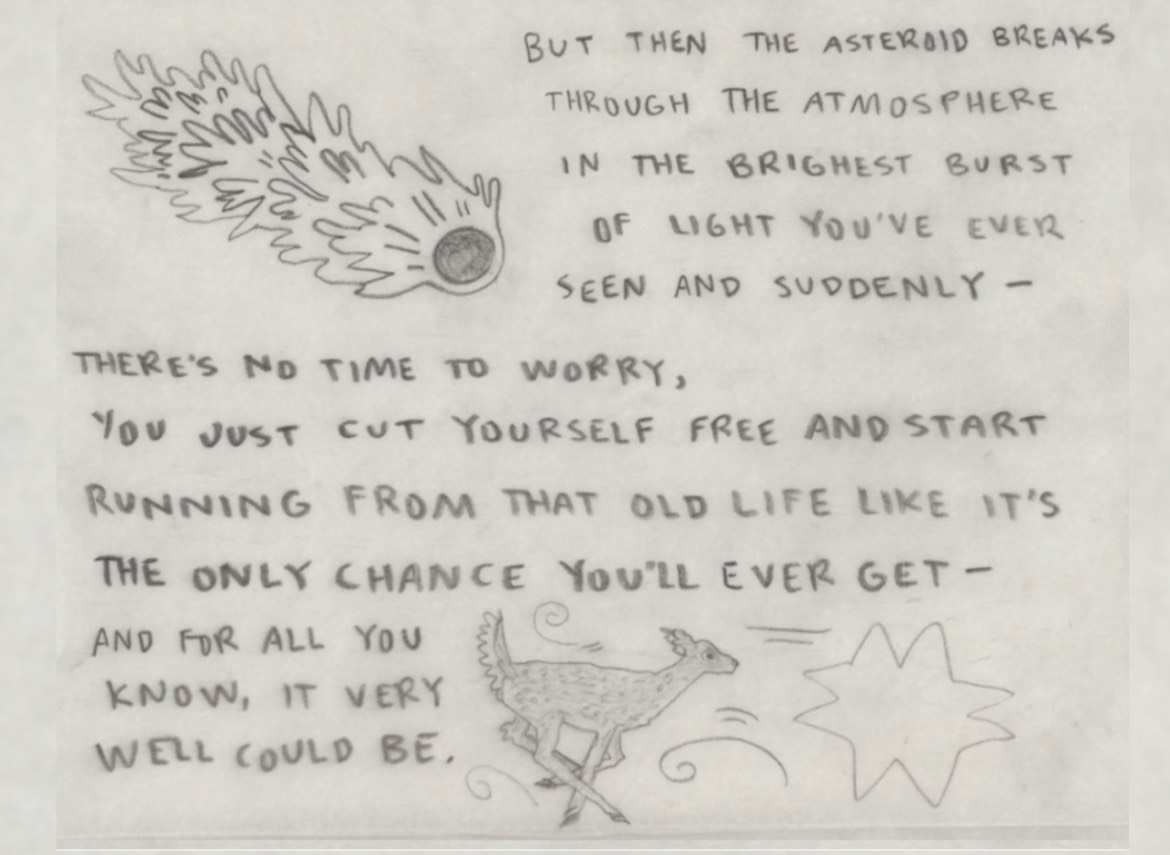 BUT THEN THE ASTEROID BREAKS
THROUGH THE ATMOSPHERE
IN THE BRIGHEST BURST
OF LIGHT YOU'VE EVER
SEEN AND SUDDENLY –
THERE'S NO TIME TO WORRY,
YOU JUST CUT YOURSELF FREE AND START
RUNNING FROM THAT OLD LIFE LIKE IT'S
THE ONLY CHANCE YOU'LL EVER GET –
AND FOR ALL YOU
KNOW, IT VERY
WELL COULD BE.